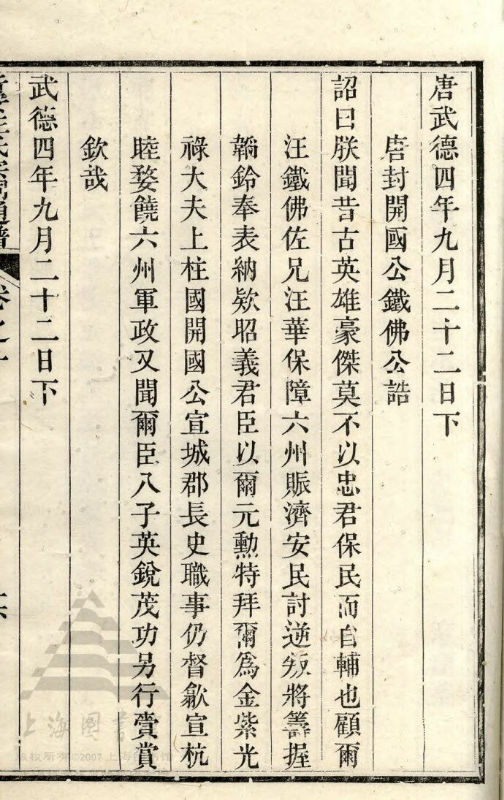 唐武德四年九月二十二日下
唐封開國公鐵佛公誥
詔曰朕聞昔古英雄豪傑莫不以忠君保民而自輔也顧爾
汪鐵佛佐兄汪華保障六州賑濟安民討逆叛將籌握
韜鈴奉表納欵昭義君臣以爾元勳特拜爾為金紫光
祿大夫上柱國開國公宣城郡長史職事仍督歙宣杭
睦婺饒六州軍政又聞爾臣八子英銳茂功另行賣賞
欽哉
武德四年九月二十二日下
卷之
上海图书
版权所有©2007上海